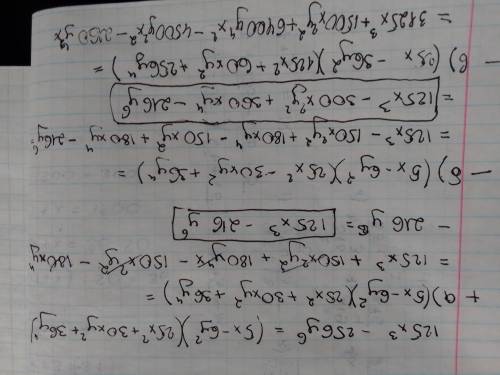 125x³ - 256y⁶ = (5x - 6y²)(25x² + 30xy² + 36y⁴)
+ а) (5x - 6y²)(25x² + 30xy² + 36y⁴) =
= 125x³ + 150x²y² + 180y⁴x - 150x²y² - 180xy⁴
- 216y⁶ = 125x³ - 216y⁶
- б) (5x - 6y²)(25x² - 30xy² + 36y⁴) =
= 125x³ - 150x²y² + 180xy⁴ - 150xy² + 180xy⁴ - 216y⁶ =
= 125x³ - 300xy² + 360xy⁴ - 216y⁶
- в) (25x - 36y²)(125x² + 60xy² + 256y⁴) =
= 3125x³ + 1500x²y² + 6400y⁴x² - 4500y²x²